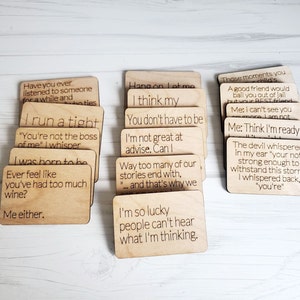 Have you ever
listened to someone
for a while and
I run a tight
"You're not the boss
of me" I whisper
I was born to be
Ever feel like
you've had too much
wine?
Me either.
Hang on. Let me
I think my
You don't have to be
I'm not great at
advise. Can I
Way too many of our
stories end with,
"... and that's why we
I'm so lucky
people can't hear
what I'm thinking.
Those moments you
A good friend would
bail you out of jail
Me: I can't see you
Me: Think I'm ready
The devil whispered
in my ear "your not
strong enough to
withstand this storm"
I whispered back,
"you're"